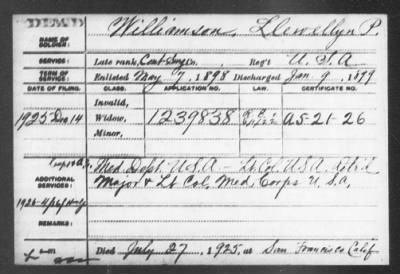 DEM'D
NAME OF SOLDIER: Williamson, Llewellyn P.
SERVICE: Late rank, Cont. Surg Co. , Reg't U.S.A
TERM OF SERVICE: Enlisted May 7, 1898 Discharged Jan 9, 1899
DATE OF FILING. CLASS. APPLICATION NO. CERTIFICATE NO.
Invalid,
1925 Dec 14 Widow, 1239838 A5-21-26
Minor,
ADDITIONAL SERVICES: Med Dept. U.S.A - Lt Col U.S.A. Ret'd
Major & Lt Col. Med. Corps U.S.A.
REMARKS:
Died July 27, 1925, at San Francisco Calif